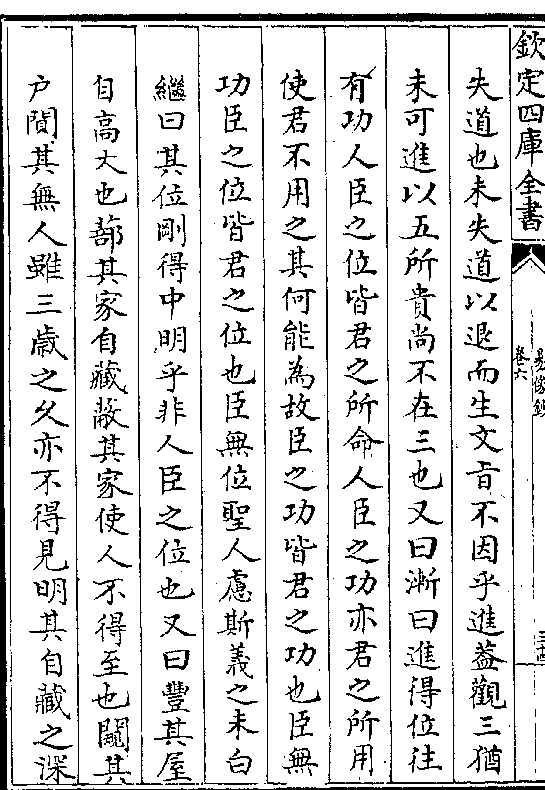 欽定四庫全書
易像鈔
卷六
三十四
失道也未失道以退而生文言不因乎進葢觀三猶
未可進以五所貴尚不在三也又曰漸曰進得位往
有功人臣之位皆君之所命人臣之功亦君之所用
使君不用之其何能為故臣之功皆君之功也臣無
功臣之位皆君之位也臣無位聖人慮斯義之未白
繼曰其位剛得中明乎非人臣之位也又曰豐其屋
自高大也蔀其家自藏蔽其家使人不得至也闚其
户闃其無人雖三歲之久亦不得見明其自藏之深